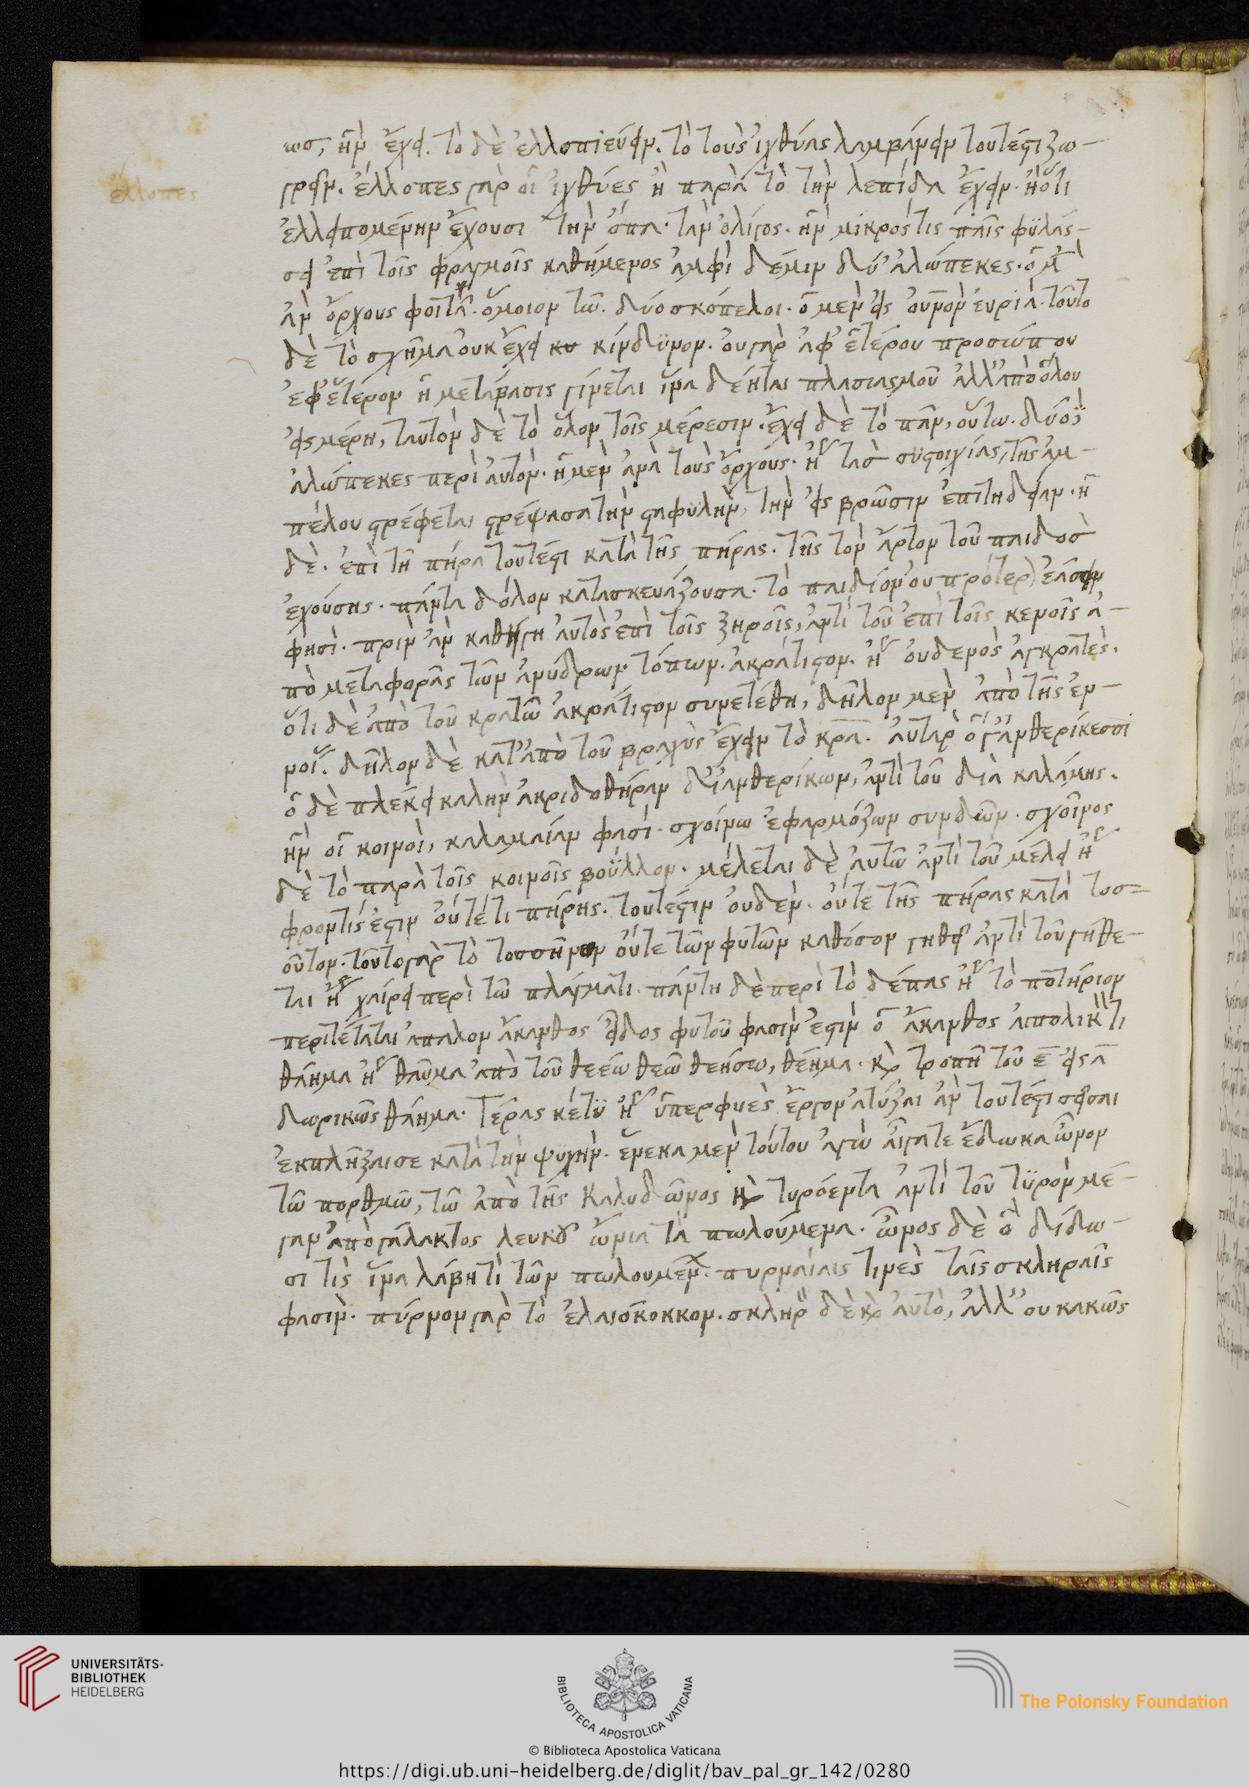 ως, ἢν ἔχει. τὸ δὲ ἐλλοπιεύειν. τὸ τοὺς ἰχθύας λαμβάνειν τουτέστι ζω-
γρεῖν. ἔλλοπες γὰρ οἱ ἰχθύες ἢ παρὰ τὸ τὴν λεπίδα ἔχειν. ἢ ὅτι
ἔλλοπες
ἐλλειπομένην ἔχουσι τὴν ὄπα. τὰν ὀλίγος. ἣν μικρός τις παῖς φυλάσ-
σει ἐπὶ τοῖς φραγμοῖς καθήμενος ἀμφὶ δέ μιν δύ' ἀλώπεκες. ἁ μ
ἀν' ὄρχους φοιτῆ. ὅμοιον τῶ. δύο σκόπελοι. ὁ μὲν εἰς οὐρανὸν εὐρὺν. τοῦτο
δὲ τὸ σχῆμα οὐκ ἔχει κίνδυνον. οὐ γὰρ ἀφ' ἑτέρου προσώπου
ἐφ' ἕτερον ἡ μετάβασις γίνεται ἵνα δέηται πλασιασμοῦ ἀλλ' ἀπὸ ὅλου
εἰς μέρη, ταυτὸν δὲ τὸ ὅλον τοῖς μέρεσιν. ἔχει δὲ τὸ πᾶν, οὕτω. δύο
ἀλώπεκες περὶ αὐτὸν. ἡ μὲν ἀνὰ τοὺς ὄρχους. ἤγουν τὰς συστοιχίας, τῆς ἀμ-
πέλου στρέφεται στρέψασα τὴν σταφυλὴν, τὴν εἰς βρῶσιν ἐπιτηδείαν. ἡ
δὲ. ἐπὶ τῆ πήρα τουτέστι κατὰ τῆς πήρας. τῆς τὸν ἄρτον τοῦ παιδὸς
ἐχούσης. πάντα δόλον κατασκευάζουσα. τὸ παιδίον οὐ πρότερ ἐάσειν
φησὶ. πρὶν ἂν καθήση αὐτὸς ἐπὶ τοῖς ξηροῖς, ἀντὶ τοῦ ἐπὶ τοῖς κενοῖς ἀ-
πὸ μεταφορᾶς τῶν ἀνύδρων τόπων. ἀκράτιστον. ἤγουν οὐδενὸς ἐγκρατὲς.
ὅτι δὲ ἀπὸ τοῦ κρατῶ ἀκράτιστον συνετέθη, δῆλον μὲν ἀπὸ τῆς ἐν-
νοί. δῆλον δὲ κατ' ἀπὸ τοῦ βραχὺς ἔχειν τὸ κρα. αὐτὰρ ὅγ' ἀνθερίκεσσι
ὁ δὲ πλέκει καλὴν ἀκριδοθήραν δι' ἀνθερίκων, ἀντὶ τοῦ διὰ καλάμης.
ἣν οἱ κοινοὶ, καλαμαίαν φασί. σχοίνω ἐφαρμόζων συνδῶν. σχοῖνος
δὲ τὸ παρὰ τοῖς κοινοῖς βοῦλλον. μέλεται δὲ αὐτῶ ἀντὶ τοῦ μέλει ἤγουν
φροντίς ἐστιν οὔτέ τι πήρης. τουτέστιν οὐδὲν. οὔτε τῆς πήρας κατὰ τοσ=
οῦτον. τοῦτο γὰρ τὸ τοσσῆνον οὔτε τῶν φυτῶν καθόσον γηθεῖ ἀντὶ τοῦ γήθε-
ται ἤγουν χαίρει περὶ τῶ πλάγματι. πάντη δὲ περὶ τὸ δέπας ἤγουν τὸ ποτήριον
περιτέταται ἁπαλὸν ἄκανθος εἶδος φυτοῦ φασὶν ἐστὶν ὁ ἄκανθος αἰπολικ τι
θάημα ἤγουν θαῦμα ἀπὸ τοῦ θεέω θεῶ θεήσω, θέημα. κ τροπῆ τοῦ ε εἰς α
δωρικῶς θάημα. τέρας κέ τυ ἤγουν ὑπερφυὲς ἔργον ἀτύξαι ἂν τουτέστι σεῖσαι
ἐκπλῆξαι σε κατὰ τὴν ψυχὴν. ἕνεκα μὲν τούτου ἐγὼ αἶγά τε ἔδωκα ὦνον
τῶ πορθμῶ, τῶ ἀπὸ τῆς Καλυδῶνος κ τυρόεντα ἀντὶ τοῦ τυρὸν μέ-
γαν ἀπὸ γάλακτος λευκοῦ ὤνια τὰ πωλούμενα. ὦνος δὲ ὃ δίδω-
σι τὶς ἵνα λάβη τὶ τῶν πωλουμέν. πυρναίαις τινὲς ταῖς σκληραῖς
φασὶν. πύρνον γὰρ τὸ ἐλαιόκοκκον. σκληρ δὲ κ αὐτὸ, ἀλλ' οὐ κακῶς
UNIVERSITÄTS-
BIBLIOTHEK
HEIDELBERG
BIBLIOTECA APOSTOLICA VATICANA
The Polonsky Foundation
© Biblioteca Apostolica Vaticana
https://digi.ub.uni-heidelberg.de/diglit/bav_pal_gr_142/0280